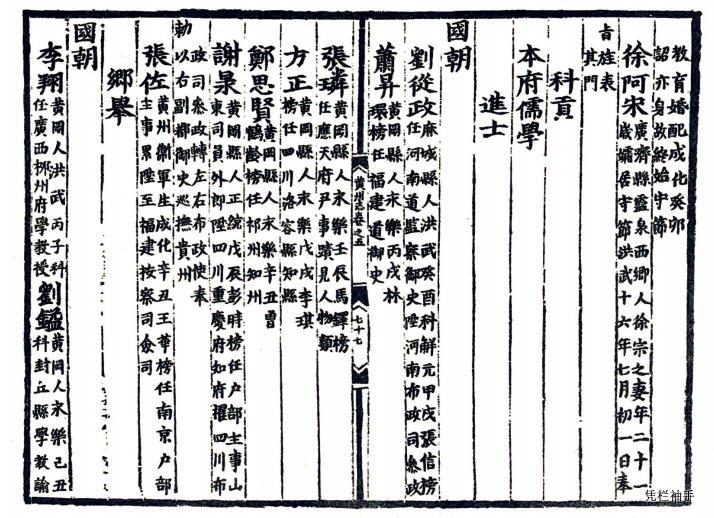 教育婚配成化癸卯
詔亦身故終始守節
徐阿宋廣濟縣靈泉西鄉人徐宗之妻年二十一
歲孀居守節洪武十六年七月初一日奉
旨旌表
其門
科貢
本府儒學
進士
國朝
劉從政麻城縣人洪武癸酉科解元甲戌張信榜
任河南道監察御史陞河南布政司參政
蕭昇黃岡縣人永樂丙戌林
環榜任福建道御史
黃州志卷之五
七十七
張璘黃岡縣人永樂壬辰馬鐸榜
任應天府尹事蹟見人物類
方正黃岡縣人永樂戊戌李騏
榜任四川洛容縣知縣
鄭思賢黃岡縣人永樂辛丑曾
鶴齡榜任祁州知州
謝杲黃岡縣人正統戊辰彭時榜任户部主事山
東司員外郎陞四川重慶府知府擢四川布
政司參政轉左右布政使奉
勅以右副都御史巡撫貴州
張佐黃州衛軍生成化辛丑王華榜任南京户部
主事累陞至福建按察司僉司
鄉舉
國朝
李翔黃岡人洪武丙子科
任廣西柳州府學教授
劉鎰黃岡人永樂己丑
科封丘縣學教諭
凭栏袖手